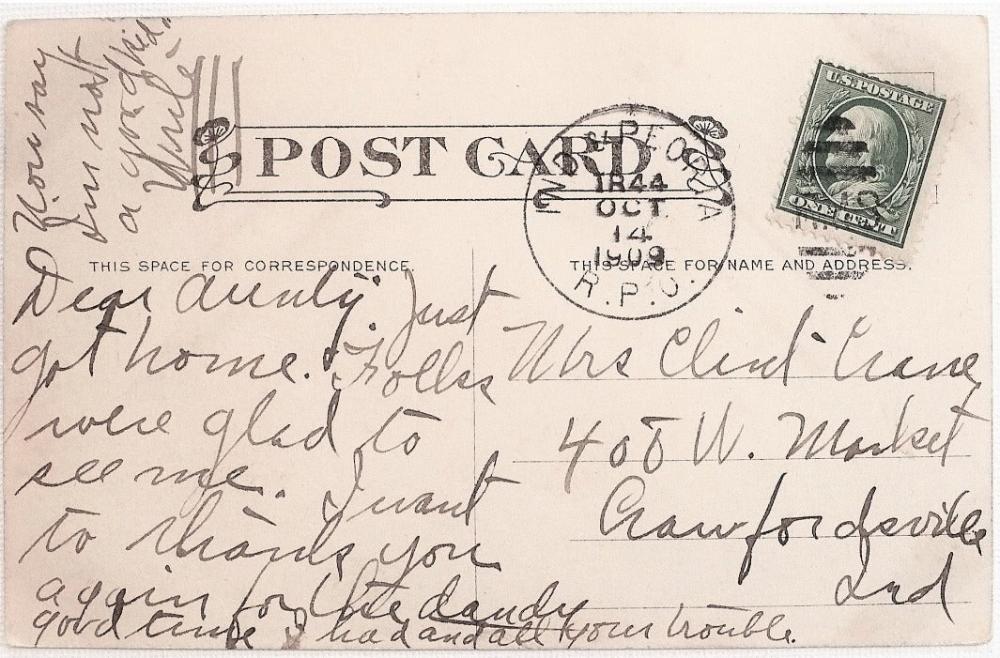 Now say
I'm not
a good kid.
POST CARD
IND & PEORIA
1844
OCT
14
1909
R.P.O.
U.S. POSTAGE
ONE CENT
THIS SPACE FOR CORRESPONDENCE
THIS SPACE FOR NAME AND ADDRESS.
Dear Aunty. Just
got home. Folkss
were glad to
see me. I want
to thank you
again for the dandy
good time I had and all your trouble.
Mrs Clint Crane
408 W. Market
Crawfordsville
Ind